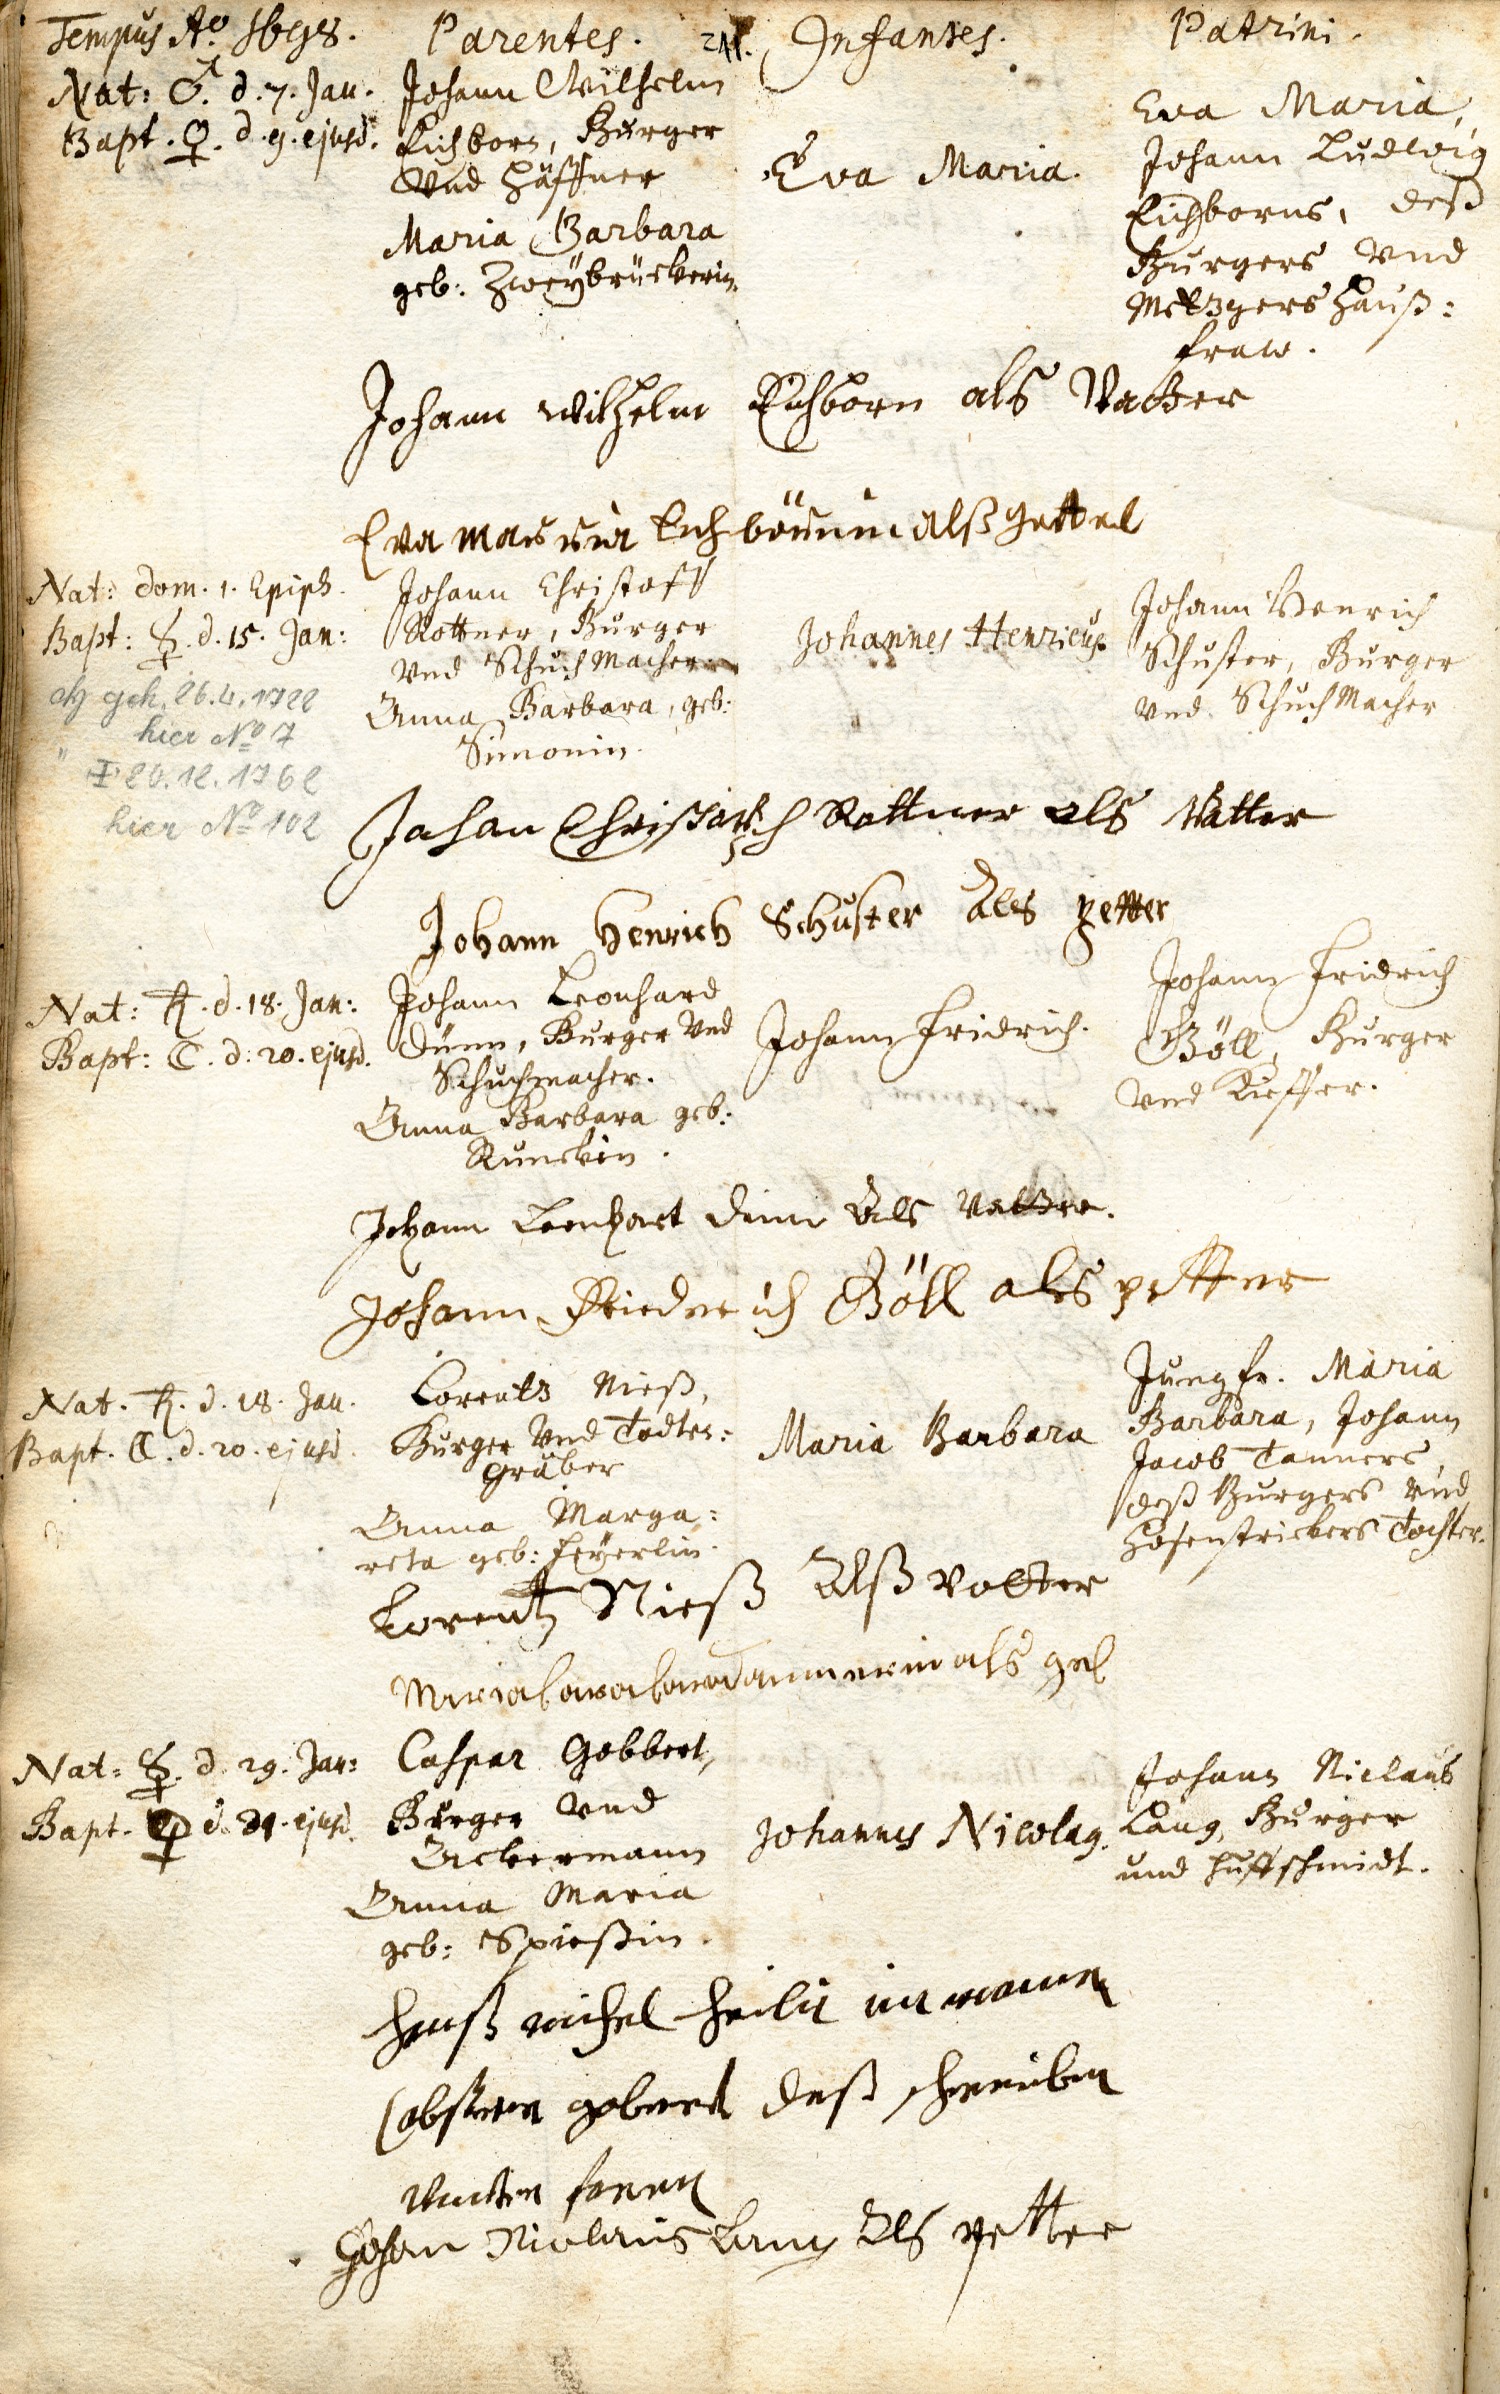 Tempus Aö. 1698. Parentes. 241. Infantes. Patrini.
Nat: ♂. d. 7. Jan.
Bapt. ☿. d. 9. ejusd.
Johann Wilhelm
Eichborn, Burger
Vnd Häffner
Maria Barbara
geb: Zweÿbrückerin.
Eva Maria.
Eva Maria,
Johann Ludwig
Eichborns, deß
Burgers Vnd
Metzgers Hauß:
fraw.
Johann Wilhelm Eichborn als Vatter
Eva Maria Eichbornin alß gettel
Nat: Dom. 1. Epiph.
Bapt: ☿. d. 15. Jan:
geh. 26.4.1722
hier No 7
" 26.12.1762
hier No 102
Johann Christoff
Rottner, Burger
Vnd SchuchMacher
Anna Barbara, geb:
Simonin.
Johannes Henricus.
Johann Henrich
Schuster, Burger
Vnd SchuchMacher
Johan Rottner als Vatter
Johann Henrich Schuster als petter
Nat: ♄. d. 18. Jan:
Bapt: ☾. d. 20. ejusd.
Johann Leonhard
Dünn, Burger Vnd
Schuchmacher.
Anna Barbara geb:
Runckin.
Johann Fridrich.
Johann Fridrich
Böll, Burger
Vnd Kieffer.
Johann Leenhart Dinn als Vatter.
Johann Friederich Böll als petter
Nat. ♄. d. 18. Jan.
Bapt. ☾. d. 20. ejusd.
Lorentz Nieß,
Burger Vnd Todten:
gräber
Anna Marga:
reta geb: Feÿerlin.
Maria Barbara
Jungfr. Maria
Barbara, Johann
Jacob Tanners,
deß Burgers Vnd
Hosenstrickers Tochter.
Lorentz Nieß Alß Vatter
Maria barabara danner in als gel
Nat: ☿. d. 29. Jan:
Bapt. d. 31. ejusd.
Caspar Gobbert,
Burger Vnd
Ackermann
Anna Maria
geb: Spießin.
Johannes Nicolaus.
Johann Niclaus
Lang, Burger
und Huffschmidt.
Hanß michel heilig im namen
Cabsper gobert deß schreiben
Johan Nicolaus Lang Als petter